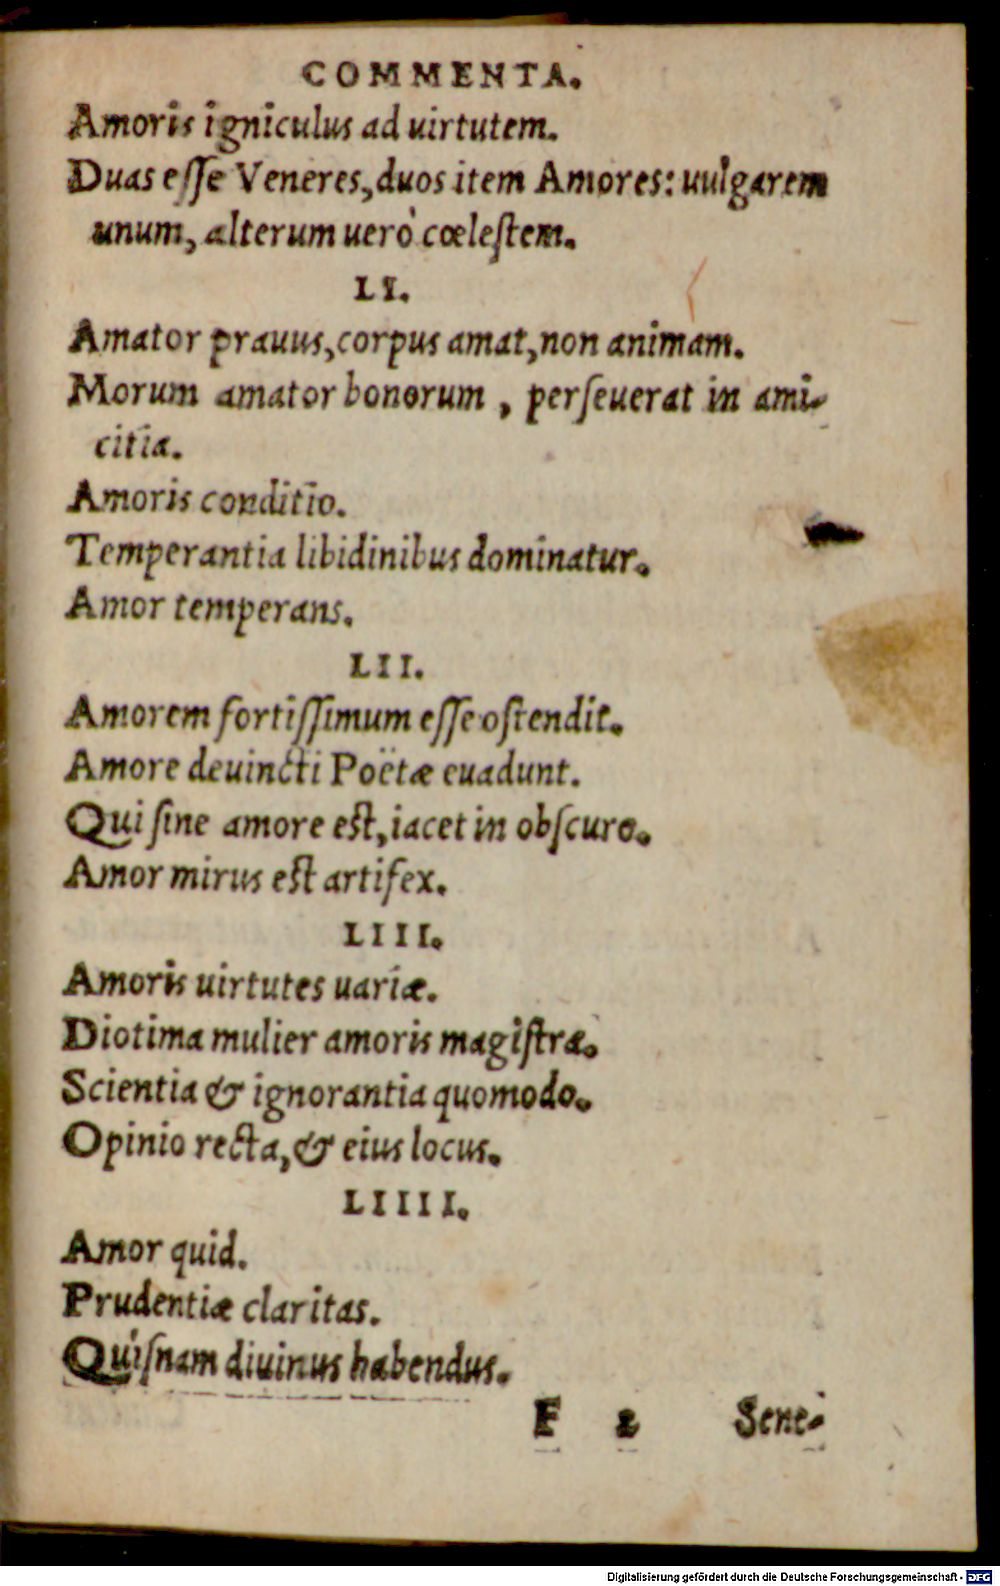 COMMENTA.
Amoris igniculus ad uirtutem.
Duas eſſe Veneres, duos item Amores: uulgarem
unum, alterum uerò cœleſtem.
LI.
Amator prauus, corpus amat, non animam.
Morum amator bonorum, perſeuerat in ami-
citia.
Amoris conditio.
Temperantia libidinibus dominatur.
Amor temperans.
LII.
Amorem fortiſſimum eſſe oſtendit.
Amore deuincti Poëtæ euadunt.
Qui ſine amore eſt, iacet in obſcuro.
Amor mirus eſt artifex.
LIII.
Amoris uirtutes uariæ.
Diotima mulier amoris magiſtra.
Scientia & ignorantia quomodo.
Opinio recta, & eius locus.
LIIII.
Amor quid.
Prudentiæ claritas.
Quiſnam diuinus habendus.
F 2 Sene-
Digitalisierung gefördert durch die Deutsche Forschungsgemeinschaft - DFG